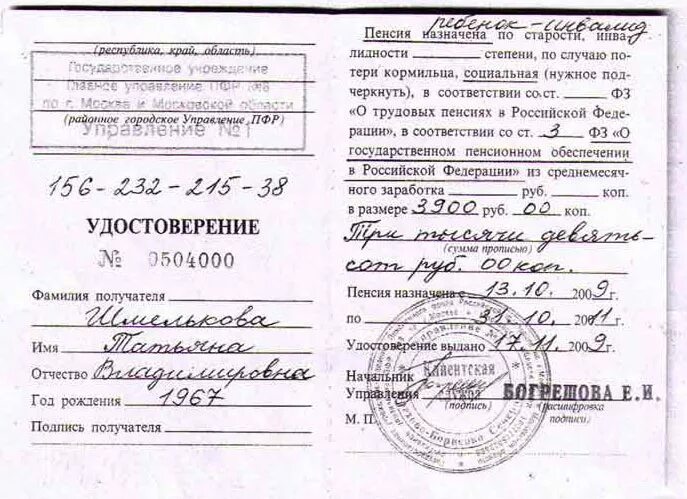 (республика, край, область)
Государственное учреждение
Главное управление ПФР №8
по г. Москве и Московской области
(районное городское Управление ПФР)
Управление №1
156-232-215-38
УДОСТОВЕРЕНИЕ
№ 0504000
Фамилия получателя
Шмелькова
Имя Татьяна
Отчество Владимировна
Год рождения 1967
Подпись получателя
ребенок-инвалид
Пенсия назначена по старости, инва-
лидности степени, по случаю по-
тери кормильца, социальная (нужное под-
черкнуть), в соответствии со ст. ФЗ
«О трудовых пенсиях в Российской Феде-
рации», в соответствии со ст. 3 ФЗ «О
государственном пенсионном обеспечении
в Российской Федерации» из среднемесяч-
ного заработка руб. коп.
в размере 3900 руб. 00 коп.
Три тысячи девять-
(сумма прописью)
сот руб. 00 коп.
Пенсия назначена с 13.10. 2009г.
по 31.10. 2011г.
Удостоверение выдано 17.11. 2009г.
Начальник Клиентская
Управления служба БОГРЕШОВА Е.И.
(подпись) (расшифровка
М. П. подписи)